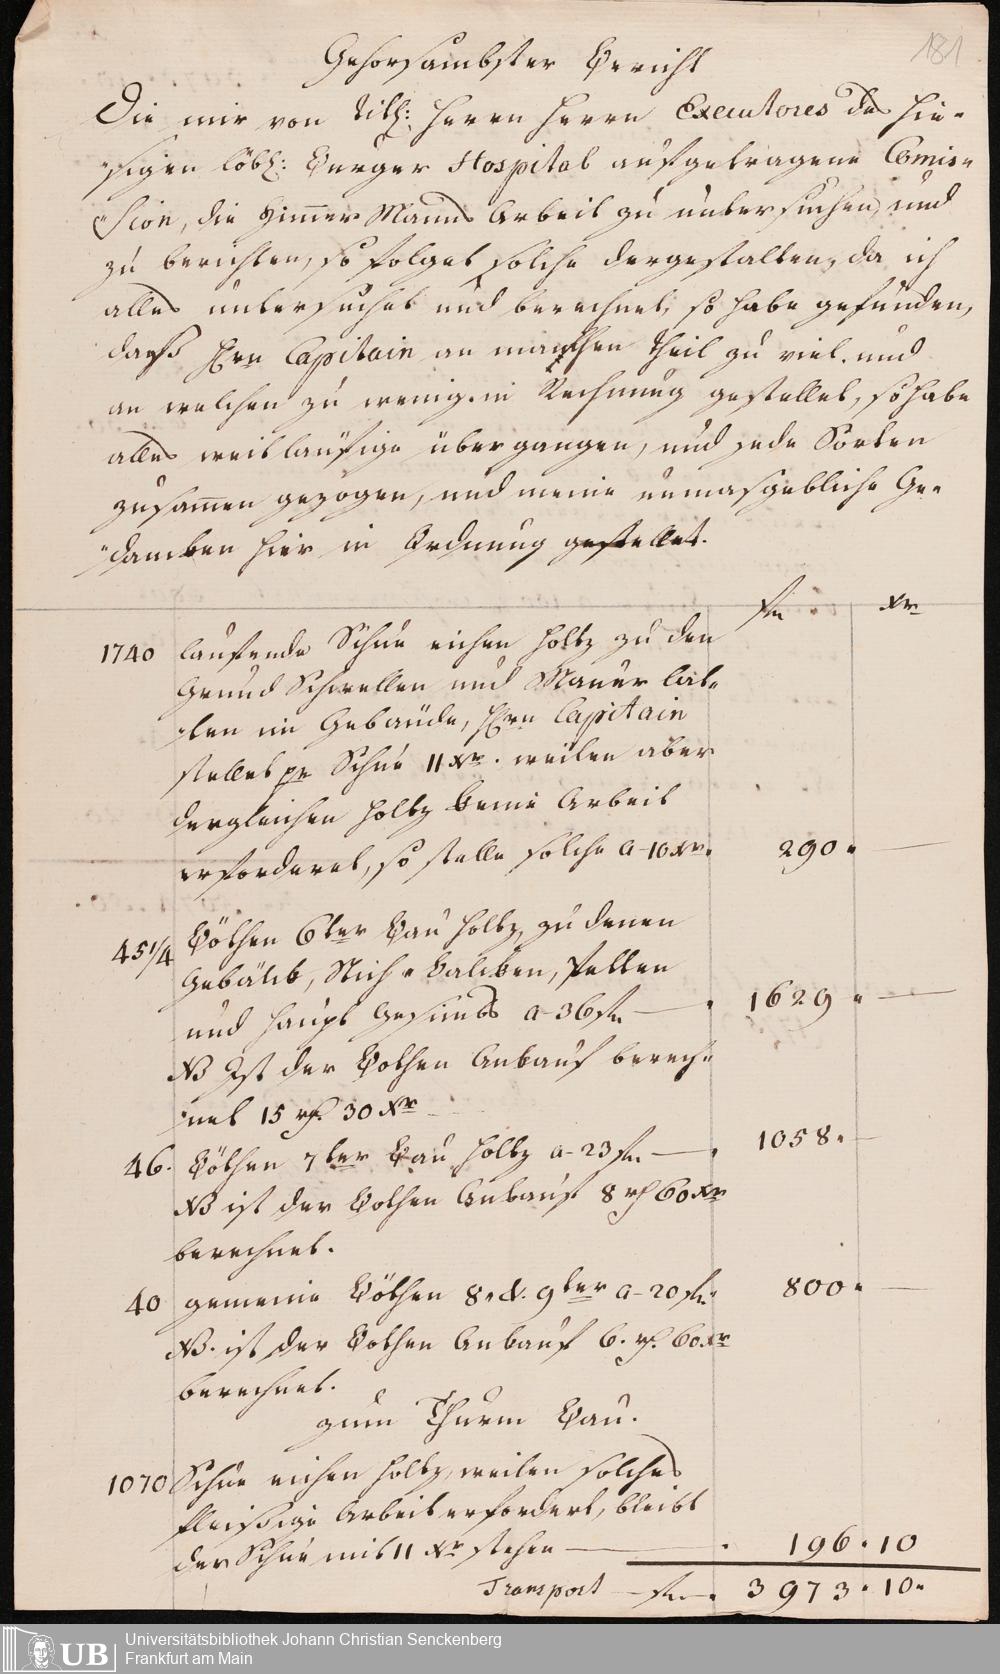 181
Gehorsambster Bericht
Die mir von titl: Herrn Herrn Executores des hie-
sigen löbl: Burger Hospital aufgetragene Comis-
sion, die Zimer Manns Arbeit zu untersuchen, und
zu berichten, so folget solche dergestalten, da ich
alles untersuchet und berechnet, so habe gefunden,
daß Hrn Capitain an manchen Theil zu viel. und
an welchen zu wenig. in Rechnung gestellet, so habe
alles weitläufige übergangen, und jede Sorten
zusamen gezogen, und meine unmasgebliche Ge-
dancken hier in Ordnung gestellet.
fl xr
1740 laufende Schue eichen Holtz zu den
Grund Schwellen und Mauer lat-
ten im Gebäude, Hrn Capitain
stellet pr Schue 11 xr. weilen aber
dergleichen Holtz keine Arbeit
erforderet, so stelle solche a 10 xr. 290 " —
45 1/4 Böthen 6ter Bau Holtz, zu denen
Gebälck, Stich " Balcken, Pfetten
und Haupt Gesimbs a 36 fl — 1629 " —
NB Ist der Bothen Ankauf berech-
net 15 rf. 30 xr
46. Böthen 7ter Bau Holtz a 23 fl — 1058 " —
NB ist der Bothen Ankauf 8 rf 60 xr
berechnet.
40 gemeine Böthen 8. & 9ter a 20 fl 800 " —
NB. ist der Bothen Ankauf 6. rf. 60 xr
berechnet.
zum Thurm Bau.
1070 Schue eichen Holtz, weilen solches
fleißige Arbeit erfordert, bleibt
der Schue mit 11 xr stehen — 196 " 10
Transport — fl 3973 " 10 "
UB
Universitätsbibliothek Johann Christian Senckenberg
Frankfurt am Main